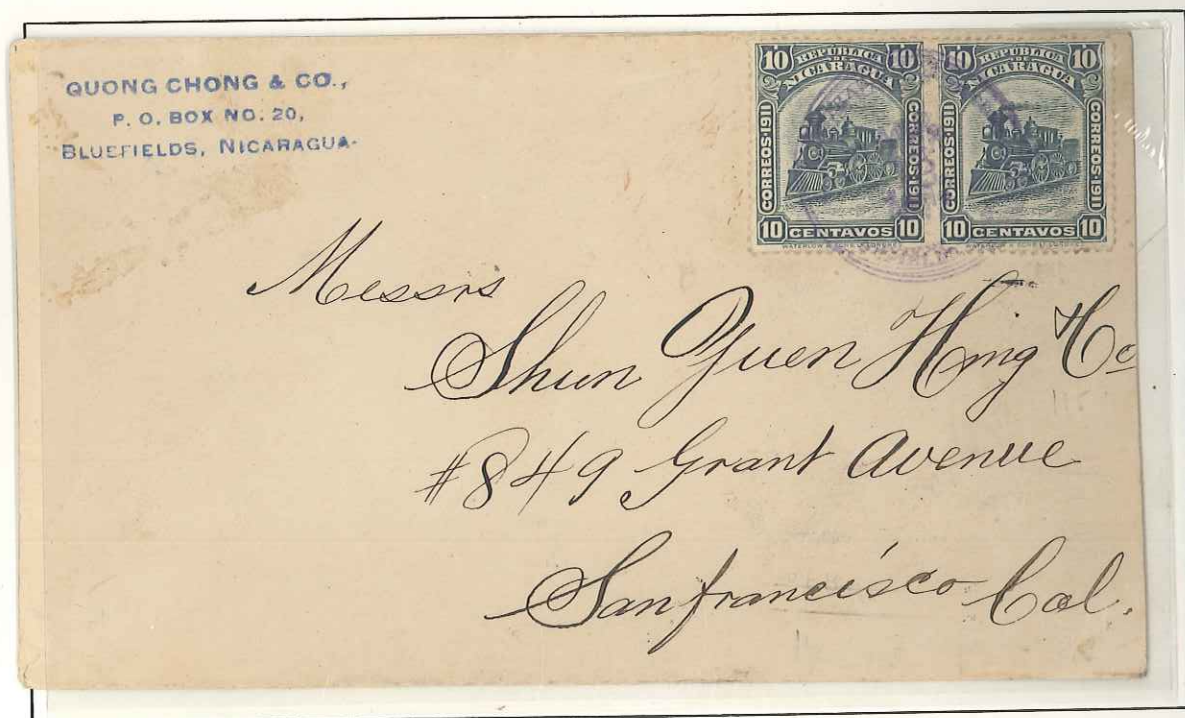 QUONG CHONG & CO.,
P. O. BOX NO. 20,
BLUEFIELDS, NICARAGUA.
10 REPUBLICA 10
DE
NICARAGUA
CORREOS·1911
CORREOS·1911
10 CENTAVOS 10
10 REPUBLICA 10
DE
NICARAGUA
CORREOS·1911
CORREOS·1911
10 CENTAVOS 10
Messrs
Shun Yuen Hing & Co
#849 Grant Avenue
San francisco Cal.